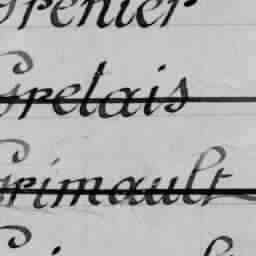 Grenier
Grelais
Grimault